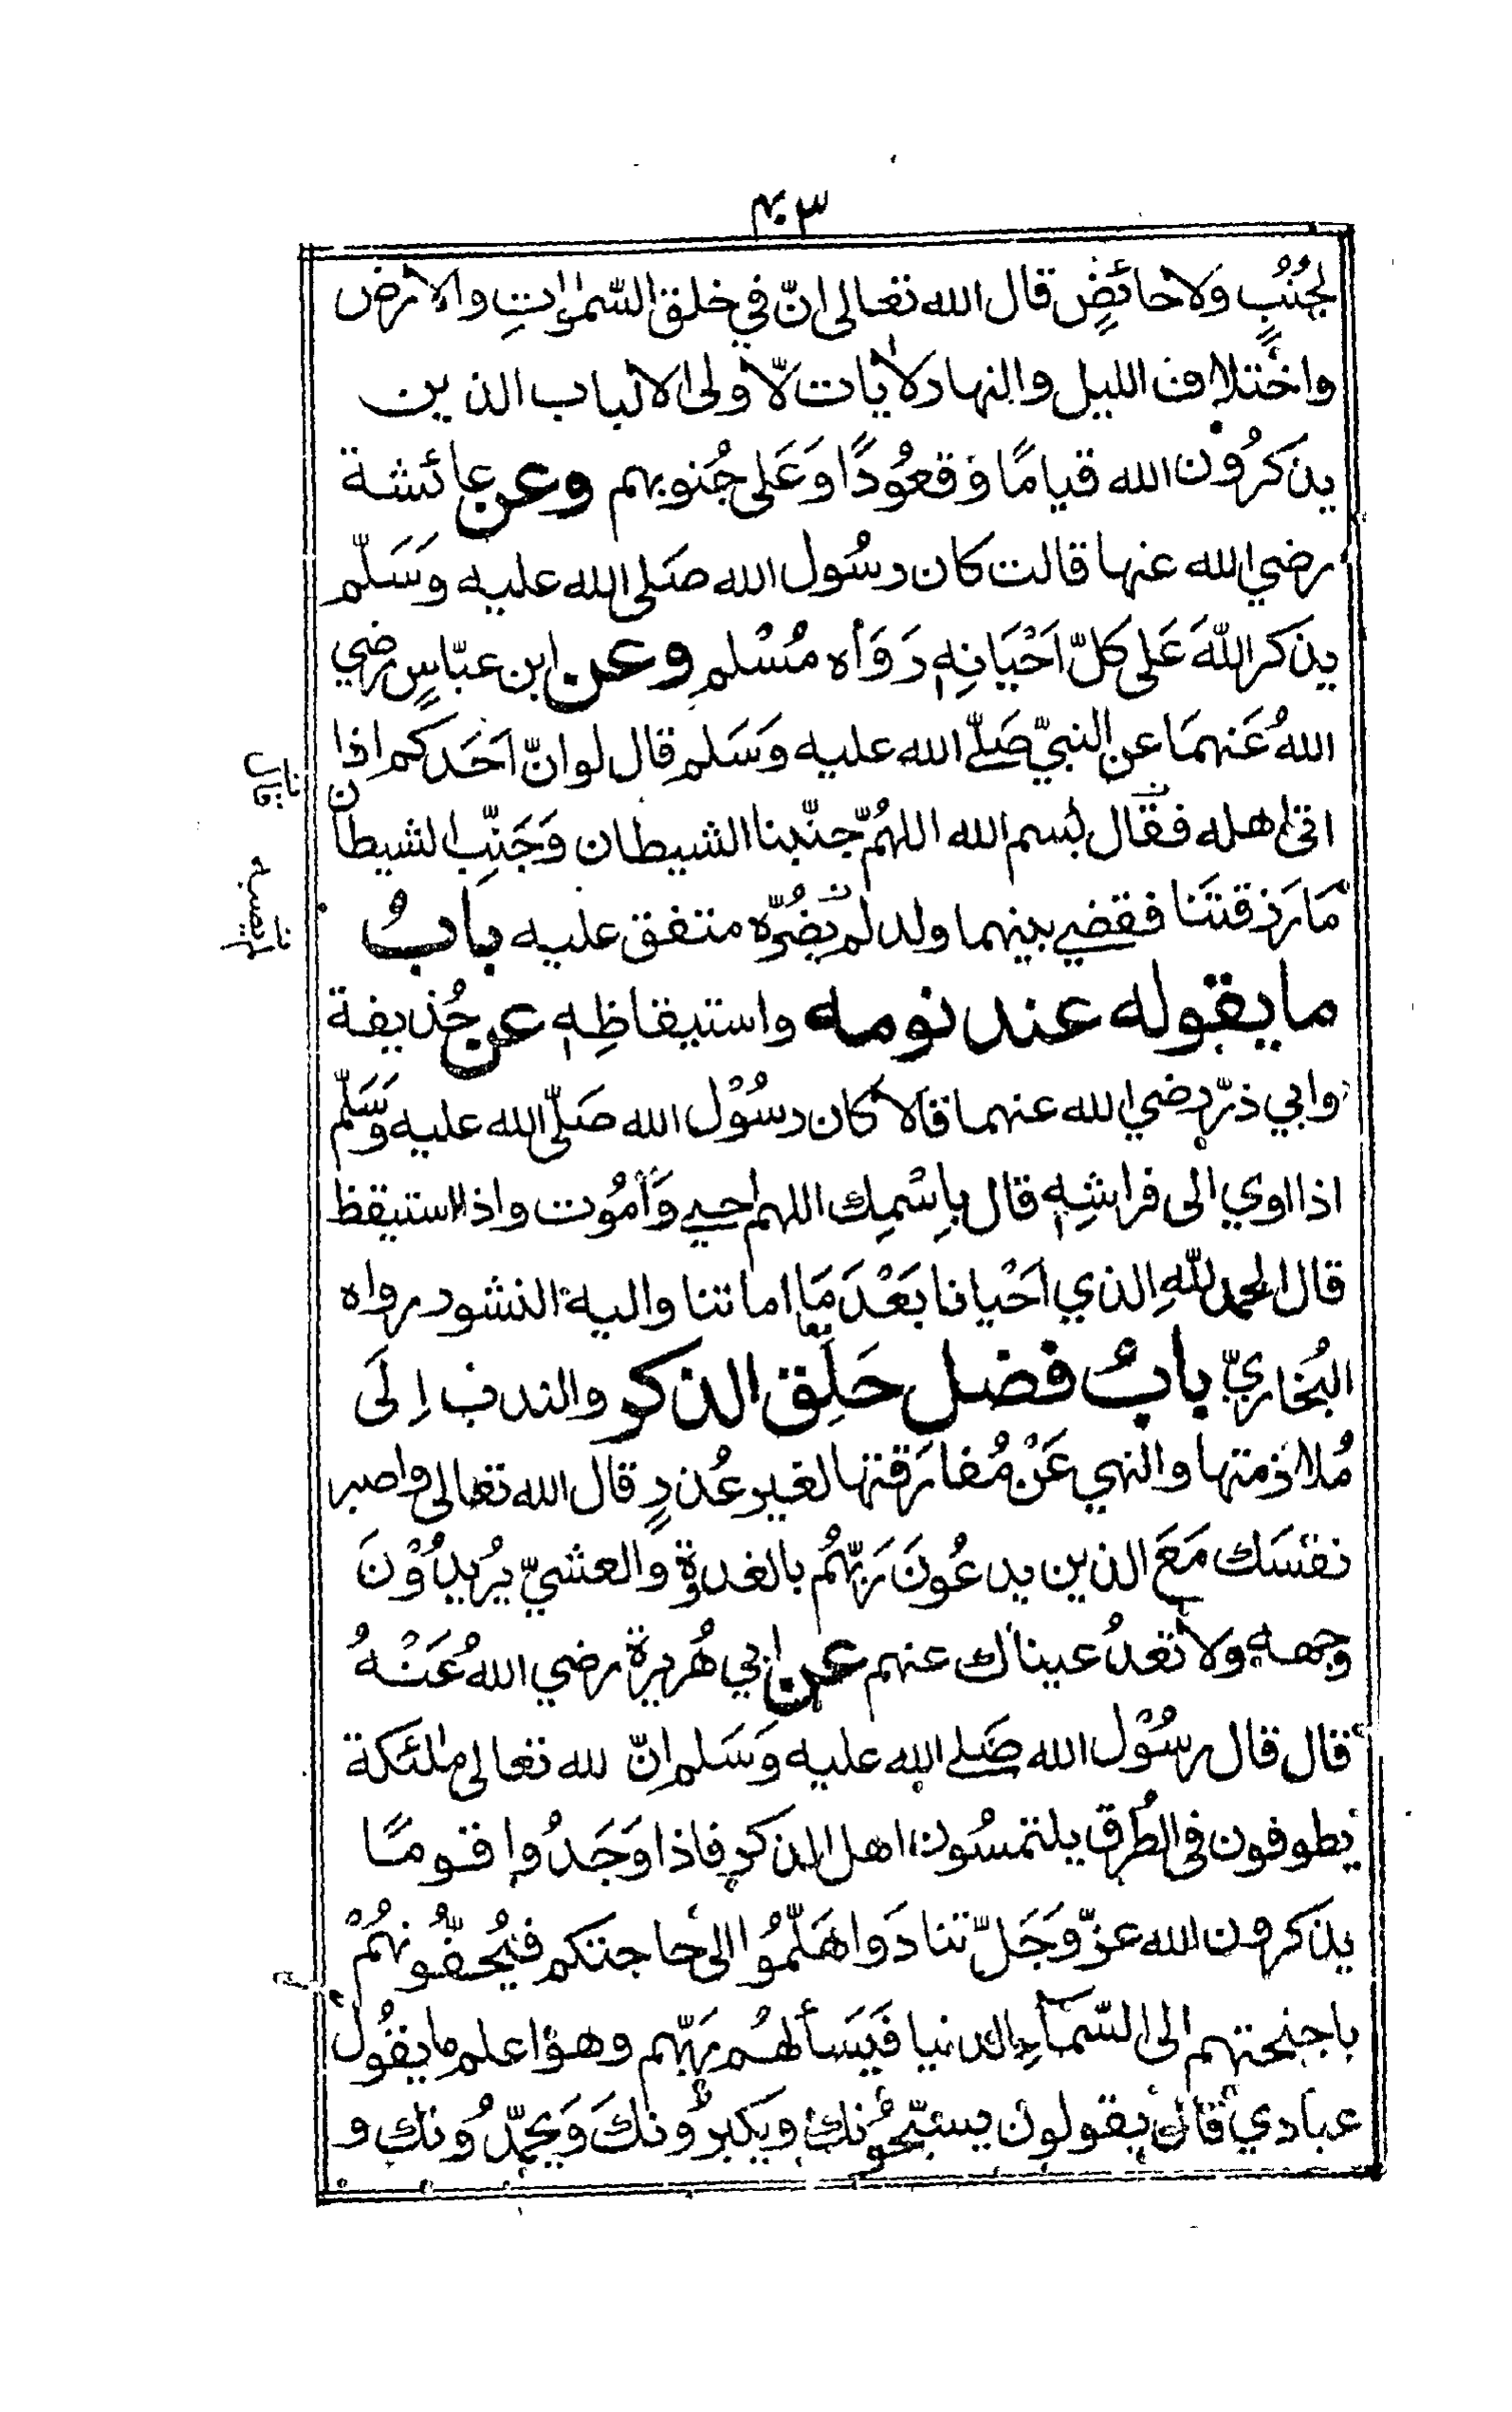 ٣٠٣
لجُنُبٍ وَلا حائضٍ قال الله تعالى انّ في خلق السّمٰوٰاتِ والارض
واختلاف الليل والنهار لاٰيات لاّولى الالباب الذين
يذكرُون الله قيامًا وَقعُودًا وَعَلى جُنوبهم وعن عائشة
رضي الله عنها قالت كان رسُول الله صَلى الله عليه وَسَلّم
يذكر اللّٰهَ عَلى كلّ اَحْيَانِهٖ رَوَاه مُسْلم وعن ابن عبّاسٍ رضي
اللهُ عَنهمَا عن النبيّ صَلّے الله عليه وَسَلم قال لو انّ اَحَدكم اذا
اتى اهله فقال بسم الله اللهُمّ جنّبنا الشيطان وَجَنِّب الشيطان
مَا رَزقتَنا فقضے بينهما ولد لم يضُرّه متفق عليه بابُ
ما يقوله عند نومه واستيقاظِهٖ عن حُذيفة
وابي ذرّ رضي الله عنهما قالا كان رسُوْل الله صَلّى الله عليه وَسَلّم
اذا اوي الى فراشِهٖ قال باِسْمِك اللهم احيے وَأمُوت واذا استيقظ
قال الحمد للّٰهِ الذي اَحْيانا بَعْدَ مَا اماتنا واليه النشور رواه
البُخاريّ بابُ فضل حَلِق الذكر والندب اِلَى
مُلازمتها والنهي عَنْ مُفارَقتها لغير عُذرٍ قال الله تعالى واصبر
نفسَك مَعَ الذين يدعُونَ رَبّهُم بالغدوة والعشيّ يُريدُوْنَ
وجهه ولا تعدُ عيناك عنهم عن ابي هُريرة رضي اللهُ عَنْهُ
قال قال رسُوْل الله صَلے الله عليه وَسَلم انّ لله تعالى ملٰئكة
يطوفون في الطُرق يلتمسُون اهل الذكر فاذا وَجَدُوا قومًا
يذكرون الله عزّ وَجَلّ تنادَوا هَلّمُوا الى حاجتكم فيُحفُّونهُمْ
باجنحتهم الى السّمآء الدنيا فَيَسألهُم رَبّهم وهو اعلم ما يقُول
عبادي قال يقولون يسبّحُونك ويكبرُونكَ وَيحمّدُونك و